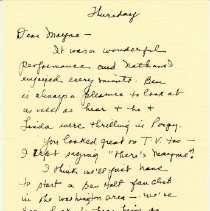 Thursday
Dear Mayne –
It was a wonderful
performance and Nathaniel
enjoyed every minute. Ben
is always a pleasure to look at
as well as hear + he +
Linda were thrilling in Porgy.
You looked great on T.V. too –
I kept saying "there's Mayne!"
I think we'll just have
to start a Ben Holt fan club
in the Washington area – we've